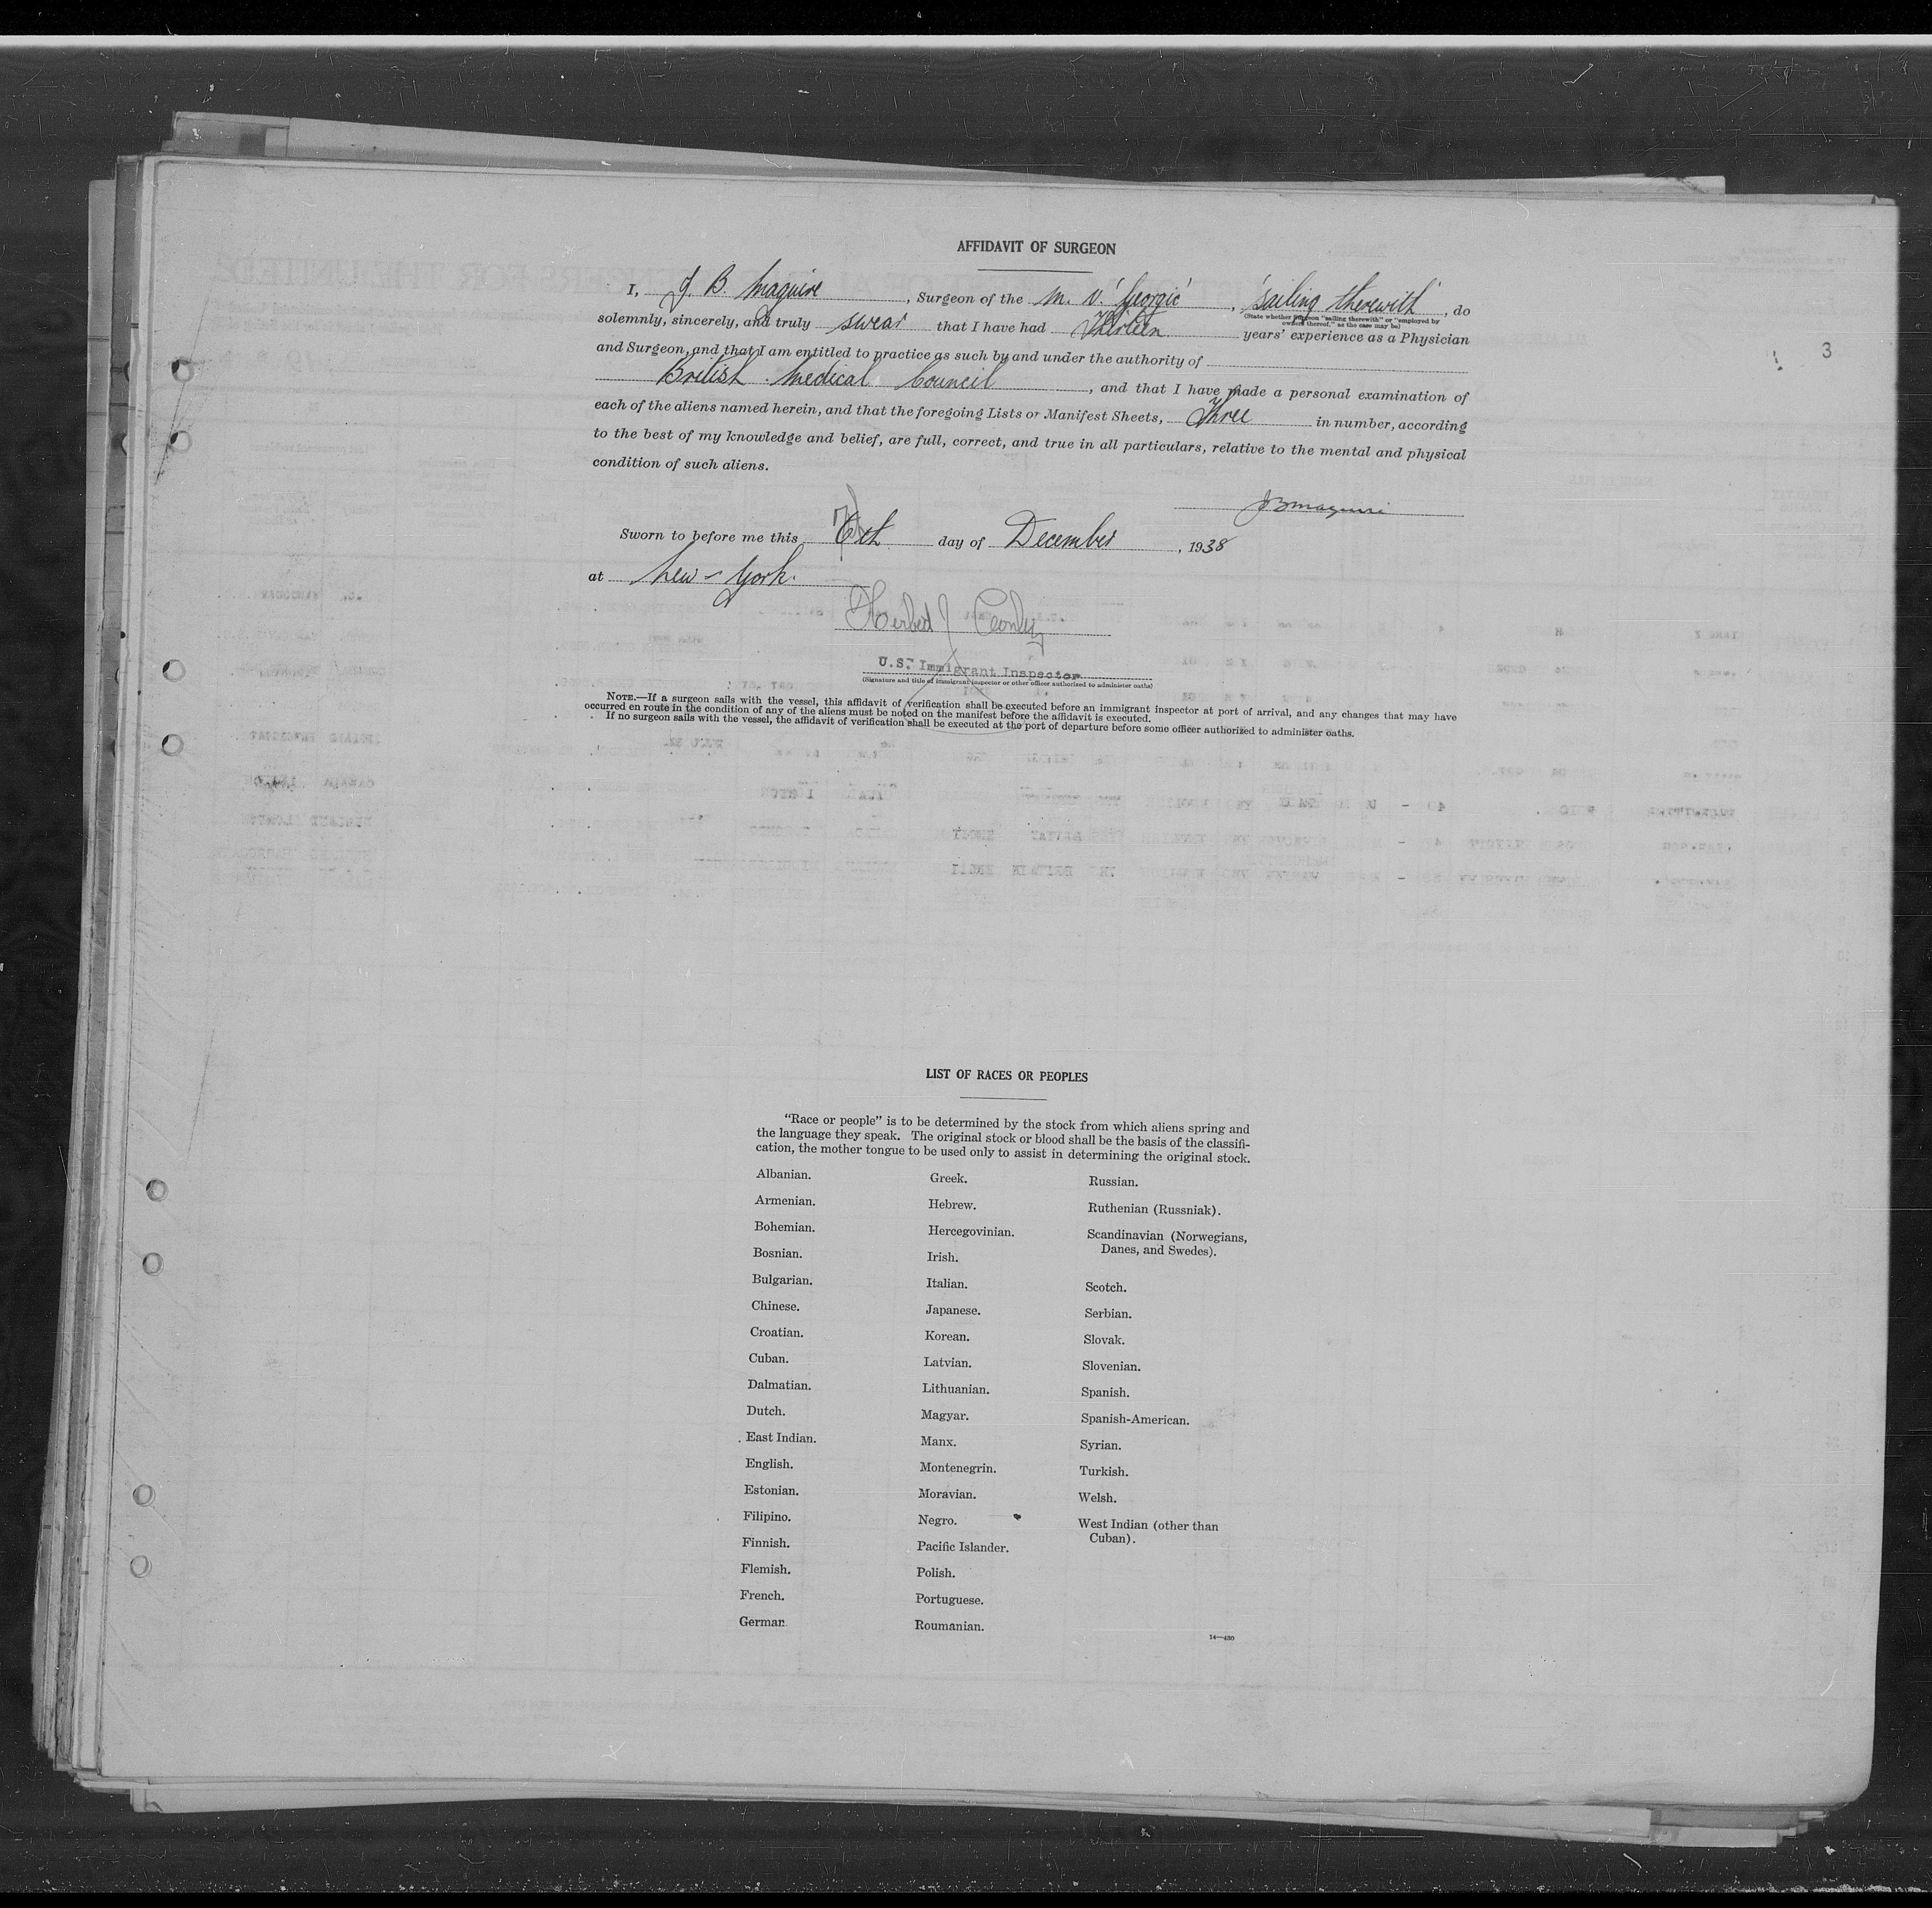 AFFIDAVIT OF SURGEON
I, J. B. Maguire, Surgeon of the M. V. 'Georgic', 'sailing therewith', do
(State whether surgeon "sailing therewith" or "employed by owners thereof," as the case may be)
solemnly, sincerely, and truly swear that I have had Thirteen years' experience as a Physician
and Surgeon, and that I am entitled to practice as such by and under the authority of
British Medical Council, and that I have made a personal examination of
each of the aliens named herein, and that the foregoing Lists or Manifest Sheets, Three in number, according
to the best of my knowledge and belief, are full, correct, and true in all particulars, relative to the mental and physical
condition of such aliens.
J B Maguire
Sworn to before me this 6th day of December, 1938
at New-York.
Herbert J
U.S. Immigrant Inspector
(Signature and title of immigrant inspector or other officer authorized to administer oaths)
NOTE.—If a surgeon sails with the vessel, this affidavit of verification shall be executed before an immigrant inspector at port of arrival, and any changes that may have
occurred en route in the condition of any of the aliens must be noted on the manifest before the affidavit is executed.
If no surgeon sails with the vessel, the affidavit of verification shall be executed at the port of departure before some officer authorized to administer oaths.
3
LIST OF RACES OR PEOPLES
"Race or people" is to be determined by the stock from which aliens spring and
the language they speak. The original stock or blood shall be the basis of the classifi-
cation, the mother tongue to be used only to assist in determining the original stock.
Albanian.
Armenian.
Bohemian.
Bosnian.
Bulgarian.
Chinese.
Croatian.
Cuban.
Dalmatian.
Dutch.
East Indian.
English.
Estonian.
Filipino.
Finnish.
Flemish.
French.
German.
Greek.
Hebrew.
Hercegovinian.
Irish.
Italian.
Japanese.
Korean.
Latvian.
Lithuanian.
Magyar.
Manx.
Montenegrin.
Moravian.
Negro.
Pacific Islander.
Polish.
Portuguese.
Roumanian.
Russian.
Ruthenian (Russniak).
Scandinavian (Norwegians,
Danes, and Swedes).
Scotch.
Serbian.
Slovak.
Slovenian.
Spanish.
Spanish-American.
Syrian.
Turkish.
Welsh.
West Indian (other than
Cuban).
14—430